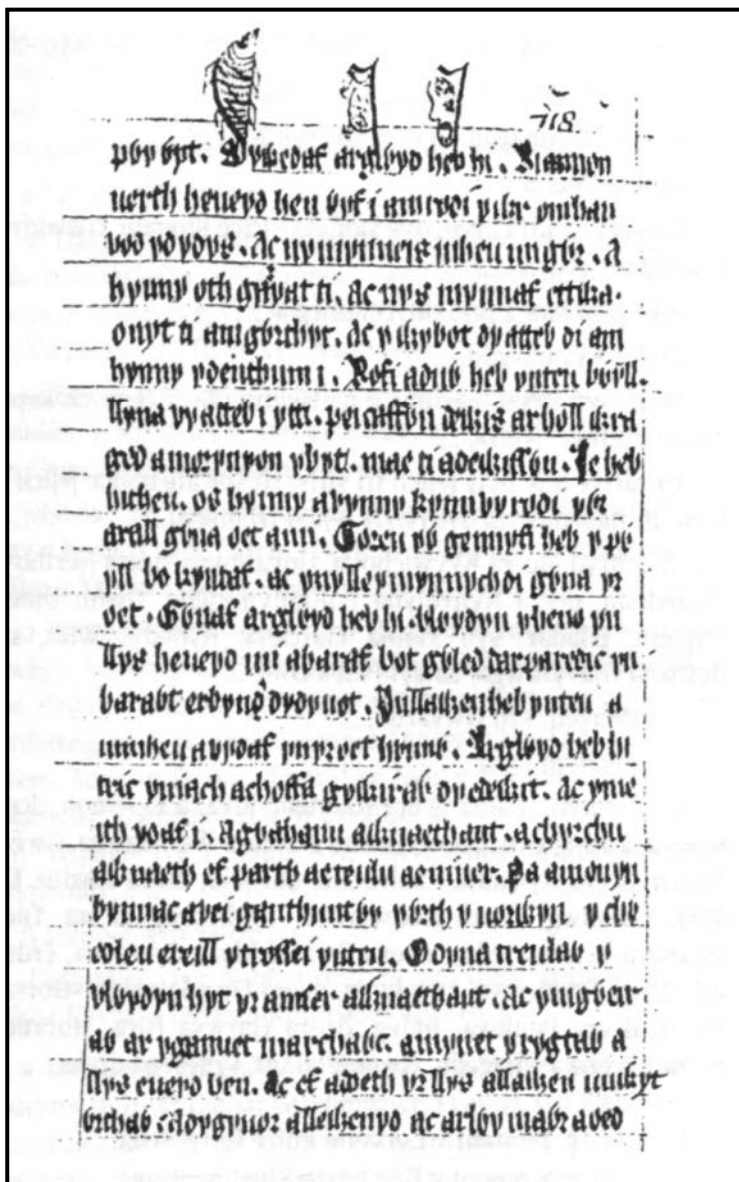 718
pỽy ỽyt. Dywedaf arglỽyd heb hi. Riannon
uerch heueyd hen ỽyf i am rodi y ỽr om han
uod yd ydys. Ac ny mynneis inheu un gỽr. a
hynny oth garyat ti. ac nys mynnaf ettỽa.
onyt ti am gỽrthyt. Ac y ỽybot dy atteb di am
hynny y deuthum i. Rofi a duỽ heb ynteu bỽyll.
llyna vy atteb i ytti. pei caffỽn dewis ar holl wra
ged a morynyon y byt. mae ti a dewissỽn. Ie heb
hitheu. os hynny a vynny kynn vy rodi y ỽr
arall gỽna oet a mi. Goreu yỽ gennyfi heb y pỽ
yll bo kyntaf. ac yn y lle y mynnych di gỽna yr
oet. Gỽnaf arglỽyd heb hi. blỽydyn y heno yn
llys heueyd mi a baraf bot gỽled darparedic yn
baraỽt erbyn dy dyuot. Yn llawen heb ynteu a
minheu a vydaf yn yr oet hỽnnỽ. Arglỽyd heb hi
tric yn iach a choffa gywiraỽ dy edewit. Ac yme
ith yd af i. A gỽahanu a wnaethant. a chyrchu
a ỽnaeth ef parth ae teulu ae niuer. Pa amouyn
bynnac a vei ganthunt ỽy y ỽrth y uorỽyn. y chỽ
edleu ereill y trossei ynteu. Odyna treulaỽ y
vlỽydyn hyt yr amser a wnaethant. ac ymgỽeir
aỽ ar y ganuet marchaỽc. a mynet y rygtaỽ a
llys eueyd hen. Ac ef a deth yr llys a llawen uuỽyt
ỽrthaỽ. a dygyuor a llewenyd ac arlỽy maỽr a oed